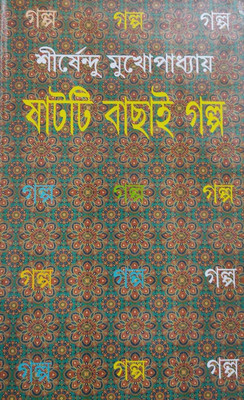 গল্প গল্প গল্প
শীর্ষেন্দু মুখোপাধ্যায়
ষাটটি বাছাই গল্প
গল্প গল্প গল্প
গল্প গল্প গল্প
গল্প গল্প গল্প